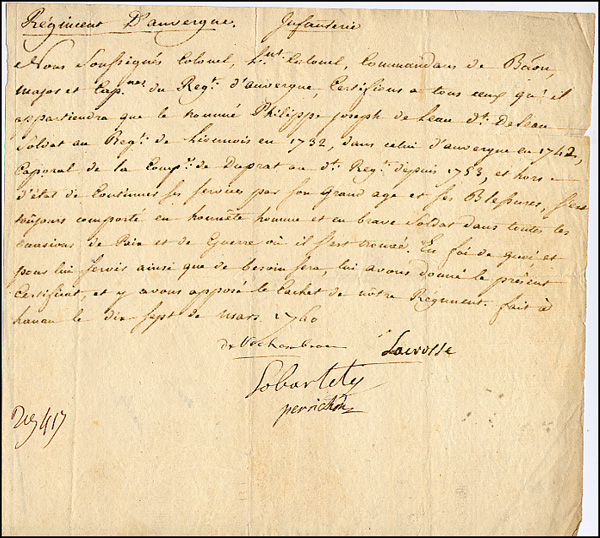 Régiment D'auvergne. Infanterie
Nous Soussignés Colonel, Lnt. Colonel, Commandans de Baón,
Major et Capnes. du Regt. d'auvergne, Certifions a tous ceux qu'il
appartiendra que le nommé Philippe joseph de Leau dt. DeLeau
Soldat au Regt. de en 1732, dans celui d'auvergne en 1742,
Caporal de la Compe. de Duprat au dt. Regt. depuis 1753, et hors
d'état de Continuer ses services par son grand age et ses Blessures, s'est
toujours comporté en honnête homme et en brave Soldat dans toutes les
occasions de Paix et de Guerre où il s'est trouvé. En foi de quoi et
pour lui servir ainsi que de besoin sera, lui avons donné le présent
Certificat, et y avons apposé le Cachet de nôtre Régiment. fait à
hanau le dix sept de mars 1760
de Rochambeau Lacrosse
perrichon